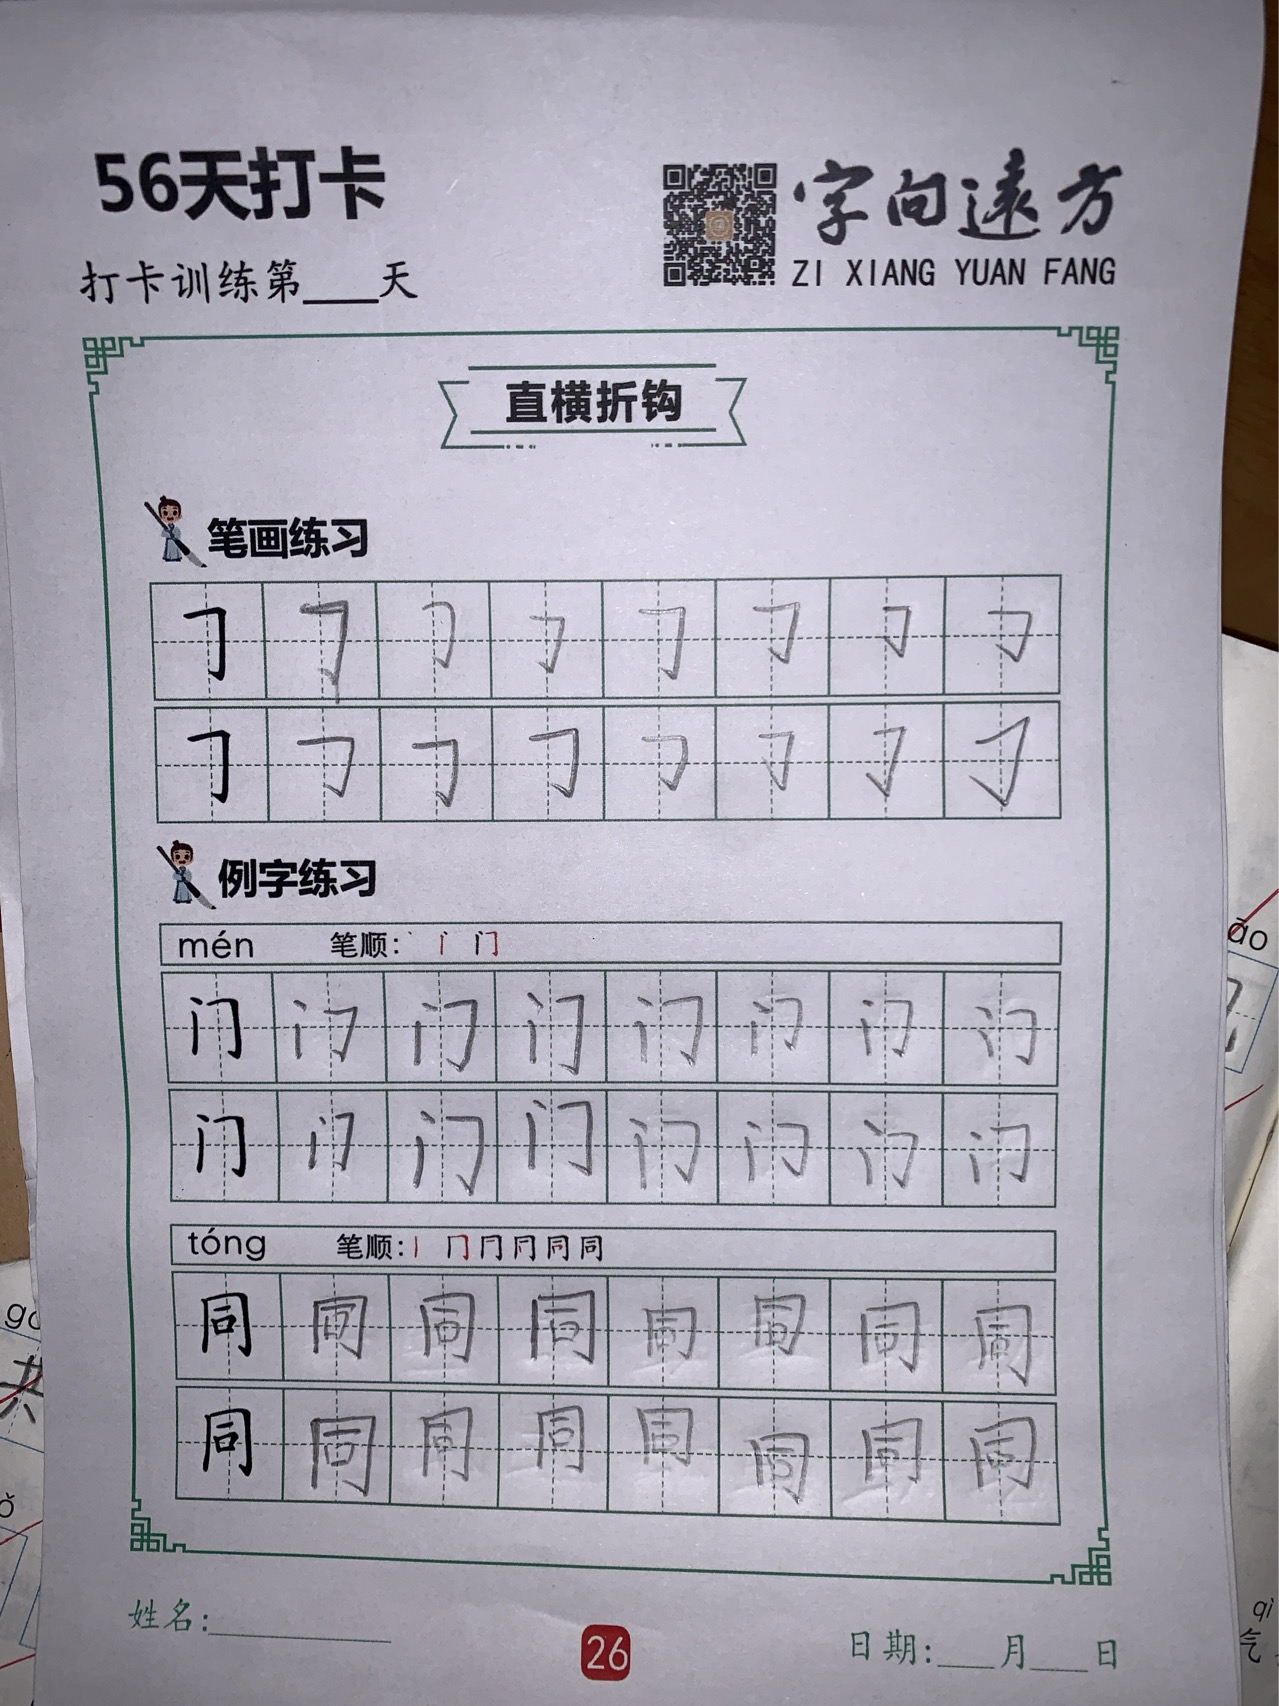 56天打卡
字向遠方
ZI XIANG YUAN FANG
打卡训练第___天
直横折钩
笔画练习
𠃌 𠃌 𠃌 𠃌 𠃌 𠃌 𠃌 𠃌
𠃌 𠃌 𠃌 𠃌 𠃌 𠃌 𠃌 𠃌
例字练习
mén 笔顺: 丶 门
门 门 门 门 门 门 门 门
门 门 门 门 门 门 门 门
tóng 笔顺: 丨 冂 同
同 同 同 同 同 同 同 同
同 同 同 同 同 同 同 同
姓名:
26
日期:___月___日
āo
共
qì
气